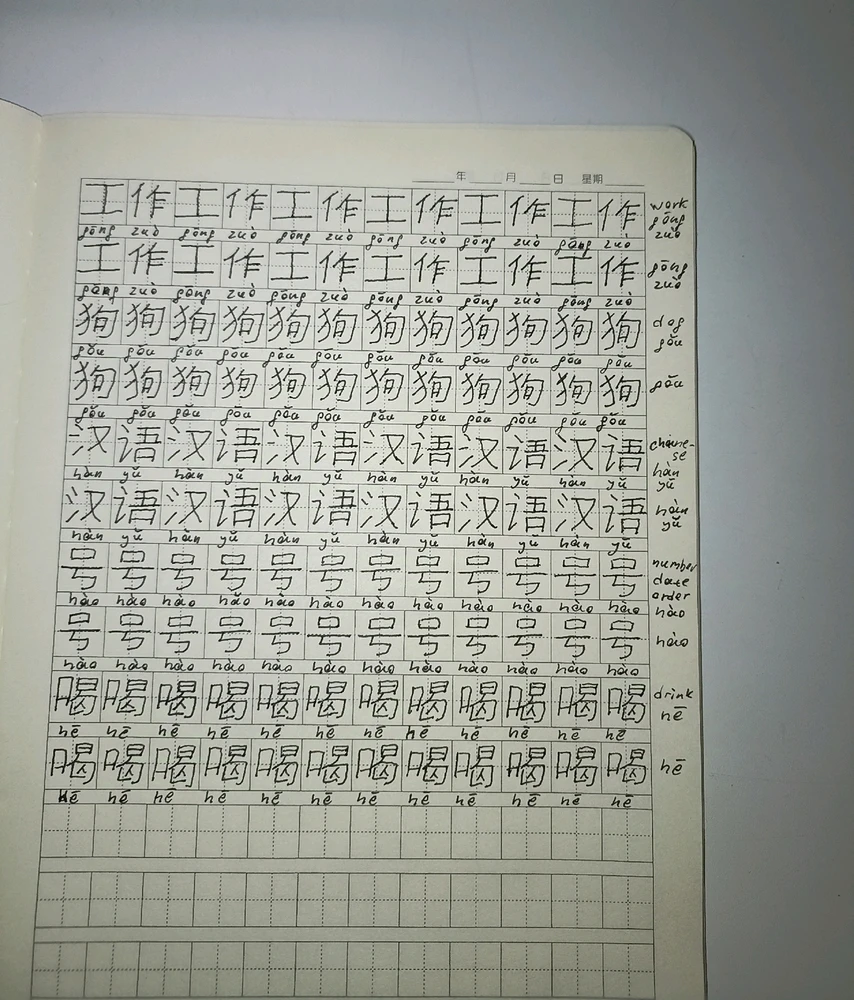 年 月 日 星期
工 作 工 作 工 作 工 作 工 作 工 作 work gōng zuò
gōng zuò gōng zuò gōng zuò gōng zuò gōng zuò gōng zuò
工 作 工 作 工 作 工 作 工 作 工 作 gōng zuò
gōng zuò gōng zuò gōng zuò gōng zuò gōng zuò gōng zuò
狗 狗 狗 狗 狗 狗 狗 狗 狗 狗 狗 狗 dog gǒu
gǒu gǒu gǒu gǒu gǒu gǒu gǒu gǒu gǒu gǒu gǒu gǒu
狗 狗 狗 狗 狗 狗 狗 狗 狗 狗 狗 狗 gǒu
gǒu gǒu gǒu gǒu gǒu gǒu gǒu gǒu gǒu gǒu gǒu gǒu
汉 语 汉 语 汉 语 汉 语 汉 语 汉 语 chaine-se hàn yǔ
hàn yǔ hàn yǔ hàn yǔ hàn yǔ hàn yǔ hàn yǔ
汉 语 汉 语 汉 语 汉 语 汉 语 汉 语 hàn yǔ
hàn yǔ hàn yǔ hàn yǔ hàn yǔ hàn yǔ hàn yǔ
号 号 号 号 号 号 号 号 号 号 号 号 number date order hào
hào hào hào hào hào hào hào hào hào hào hào hào
号 号 号 号 号 号 号 号 号 号 号 号 hào
hào hào hào hào hào hào hào hào hào hào hào hào
喝 喝 喝 喝 喝 喝 喝 喝 喝 喝 喝 喝 drink hē
hē hē hē hē hē hē hē hē hē hē hē hē
喝 喝 喝 喝 喝 喝 喝 喝 喝 喝 喝 喝 hē
hē hē hē hē hē hē hē hē hē hē hē